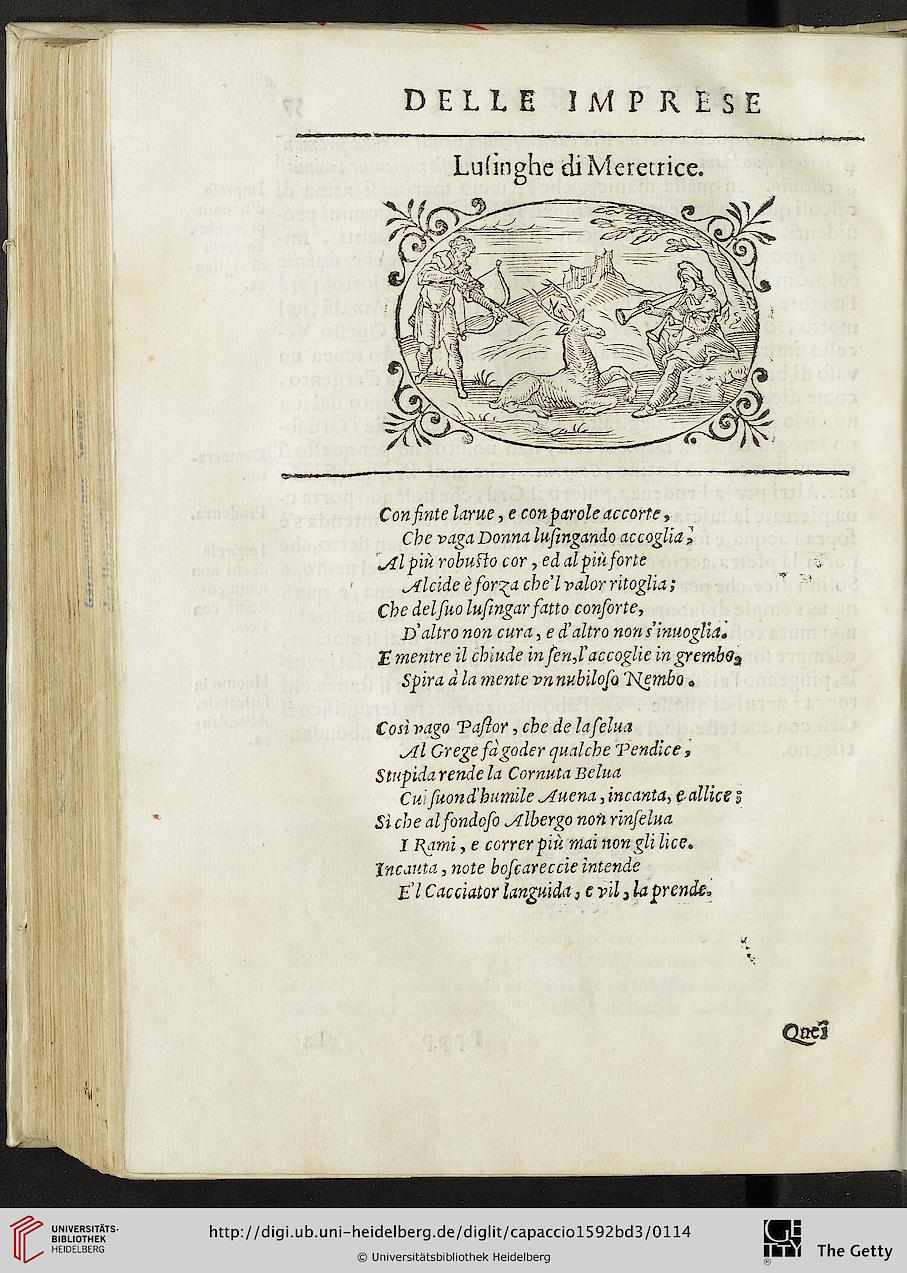 DELLE IMPRESE
Luſinghe di Meretrice.
Con finte larue, e con parole accorte,
Che vaga Donna luſingando accoglia;
Al più robuſto cor, ed al più forte
Alcide è forza che'l valor ritoglia;
Che del ſuo luſingar fatto conſorte,
D'altro non cura, e d'altro non s'inuoglia.
E mentre il chiude in ſen, l'accoglie in grembo,
Spira à la mente vn nubiloſo Nembo.
Così vago Paſtor, che de la ſelua
Al Grege fà goder qualche Pendice,
Stupida rende la Cornuta Belua
Cui ſuon d'humile Auena, incanta, e allice;
Sì che al fondoſo Albergo non rinſelua
I Rami, e correr più mai non gli lice.
Incauta, note boſcareccie intende
E'l Cacciator languida, e vil, la prende.
Quei
UNIVERSITÄTS-
BIBLIOTHEK
HEIDELBERG
http://digi.ub.uni-heidelberg.de/diglit/capaccio1592bd3/0114
© Universitätsbibliothek Heidelberg
GETTY
The Getty